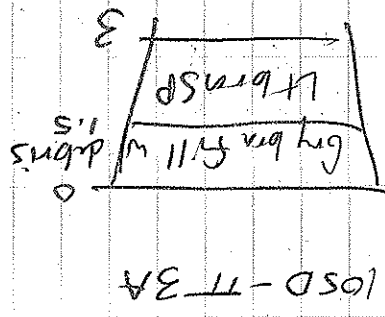 10SD - TT 3A
0
Gry brn fill w debris
1.5
Lt brn SP
3